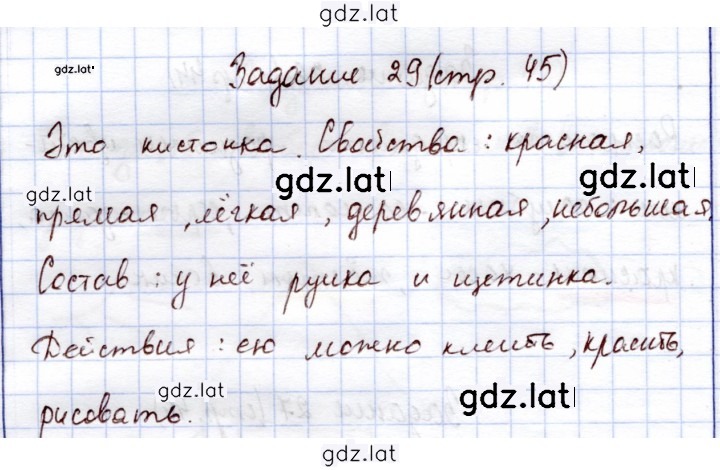 gdz.lat
gdz.lat
Задание 29 (стр. 45)
Это кисточка. Свойства: красная,
gdz.lat gdz.lat gdz.lat
прямая, лёгкая, деревянная, небольшая.
Состав: у неё ручка и щетинка.
Действия: ею можно клеить, красить,
gdz.lat gdz.lat
рисовать.
gdz.lat